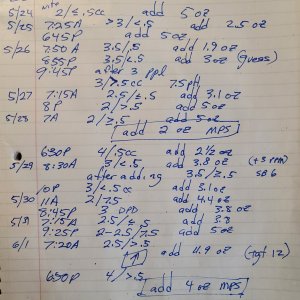 5/24 2/<.5cc add 5 oz
5/25 7:25A >3/<.5 add 2.5 oz
645P add 5 oz
5/26 7:50A 3.5/.5 add 1.9 oz
855P 3.5/<.5 add 3 oz (guess)
9:45P after 3 ppl
3/>.5cc 7.5pH
5/27 7:15A 2.5/<.5 add 3.1 oz
8P 2/>.5 add 5 oz
5/28 7A 2/>.5 add 5 oz
add 2 oz MPS
630P 4/.5cc add 2 1/2 oz
5/29 8:30A 3/<.5 add 3.8 oz
after adding 3.5/>.5
10P 3/<.5cc add 3.1 oz
5/30 11A 2/7.5 add 4.4 oz
8:45P 3 DPD add 3.8
5/31 7:15A 2.5/<.5 add 3.8 oz
9:25P 2-2.5/7.5 add 5 oz
6/1 7:20A 2.5/>.5 add 11.9 oz (tgt 12)
630P 4/>.5 add 4 oz MPS